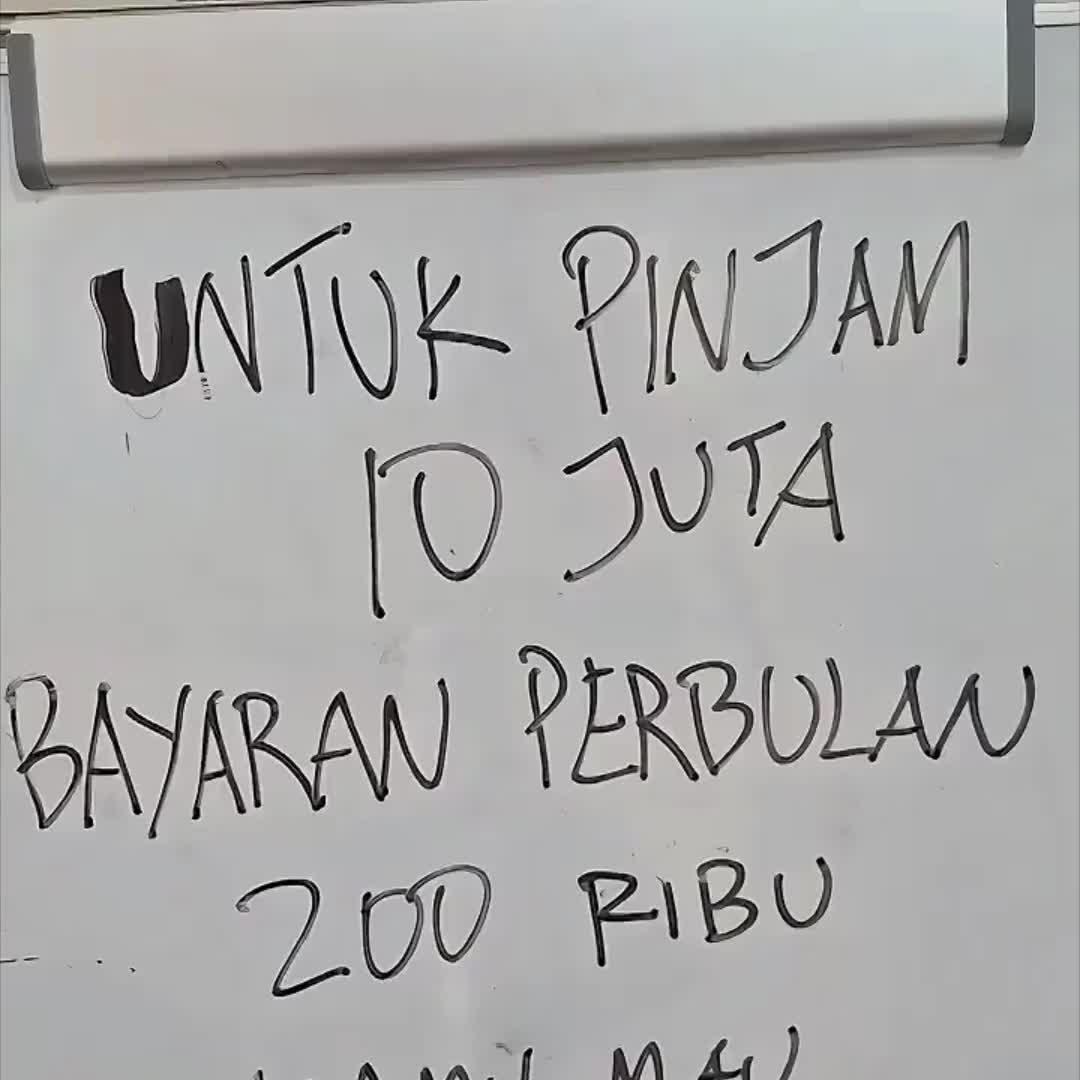 UNTUK PINJAM
10 JUTA
BAYARAN PERBULAN
200 RIBU